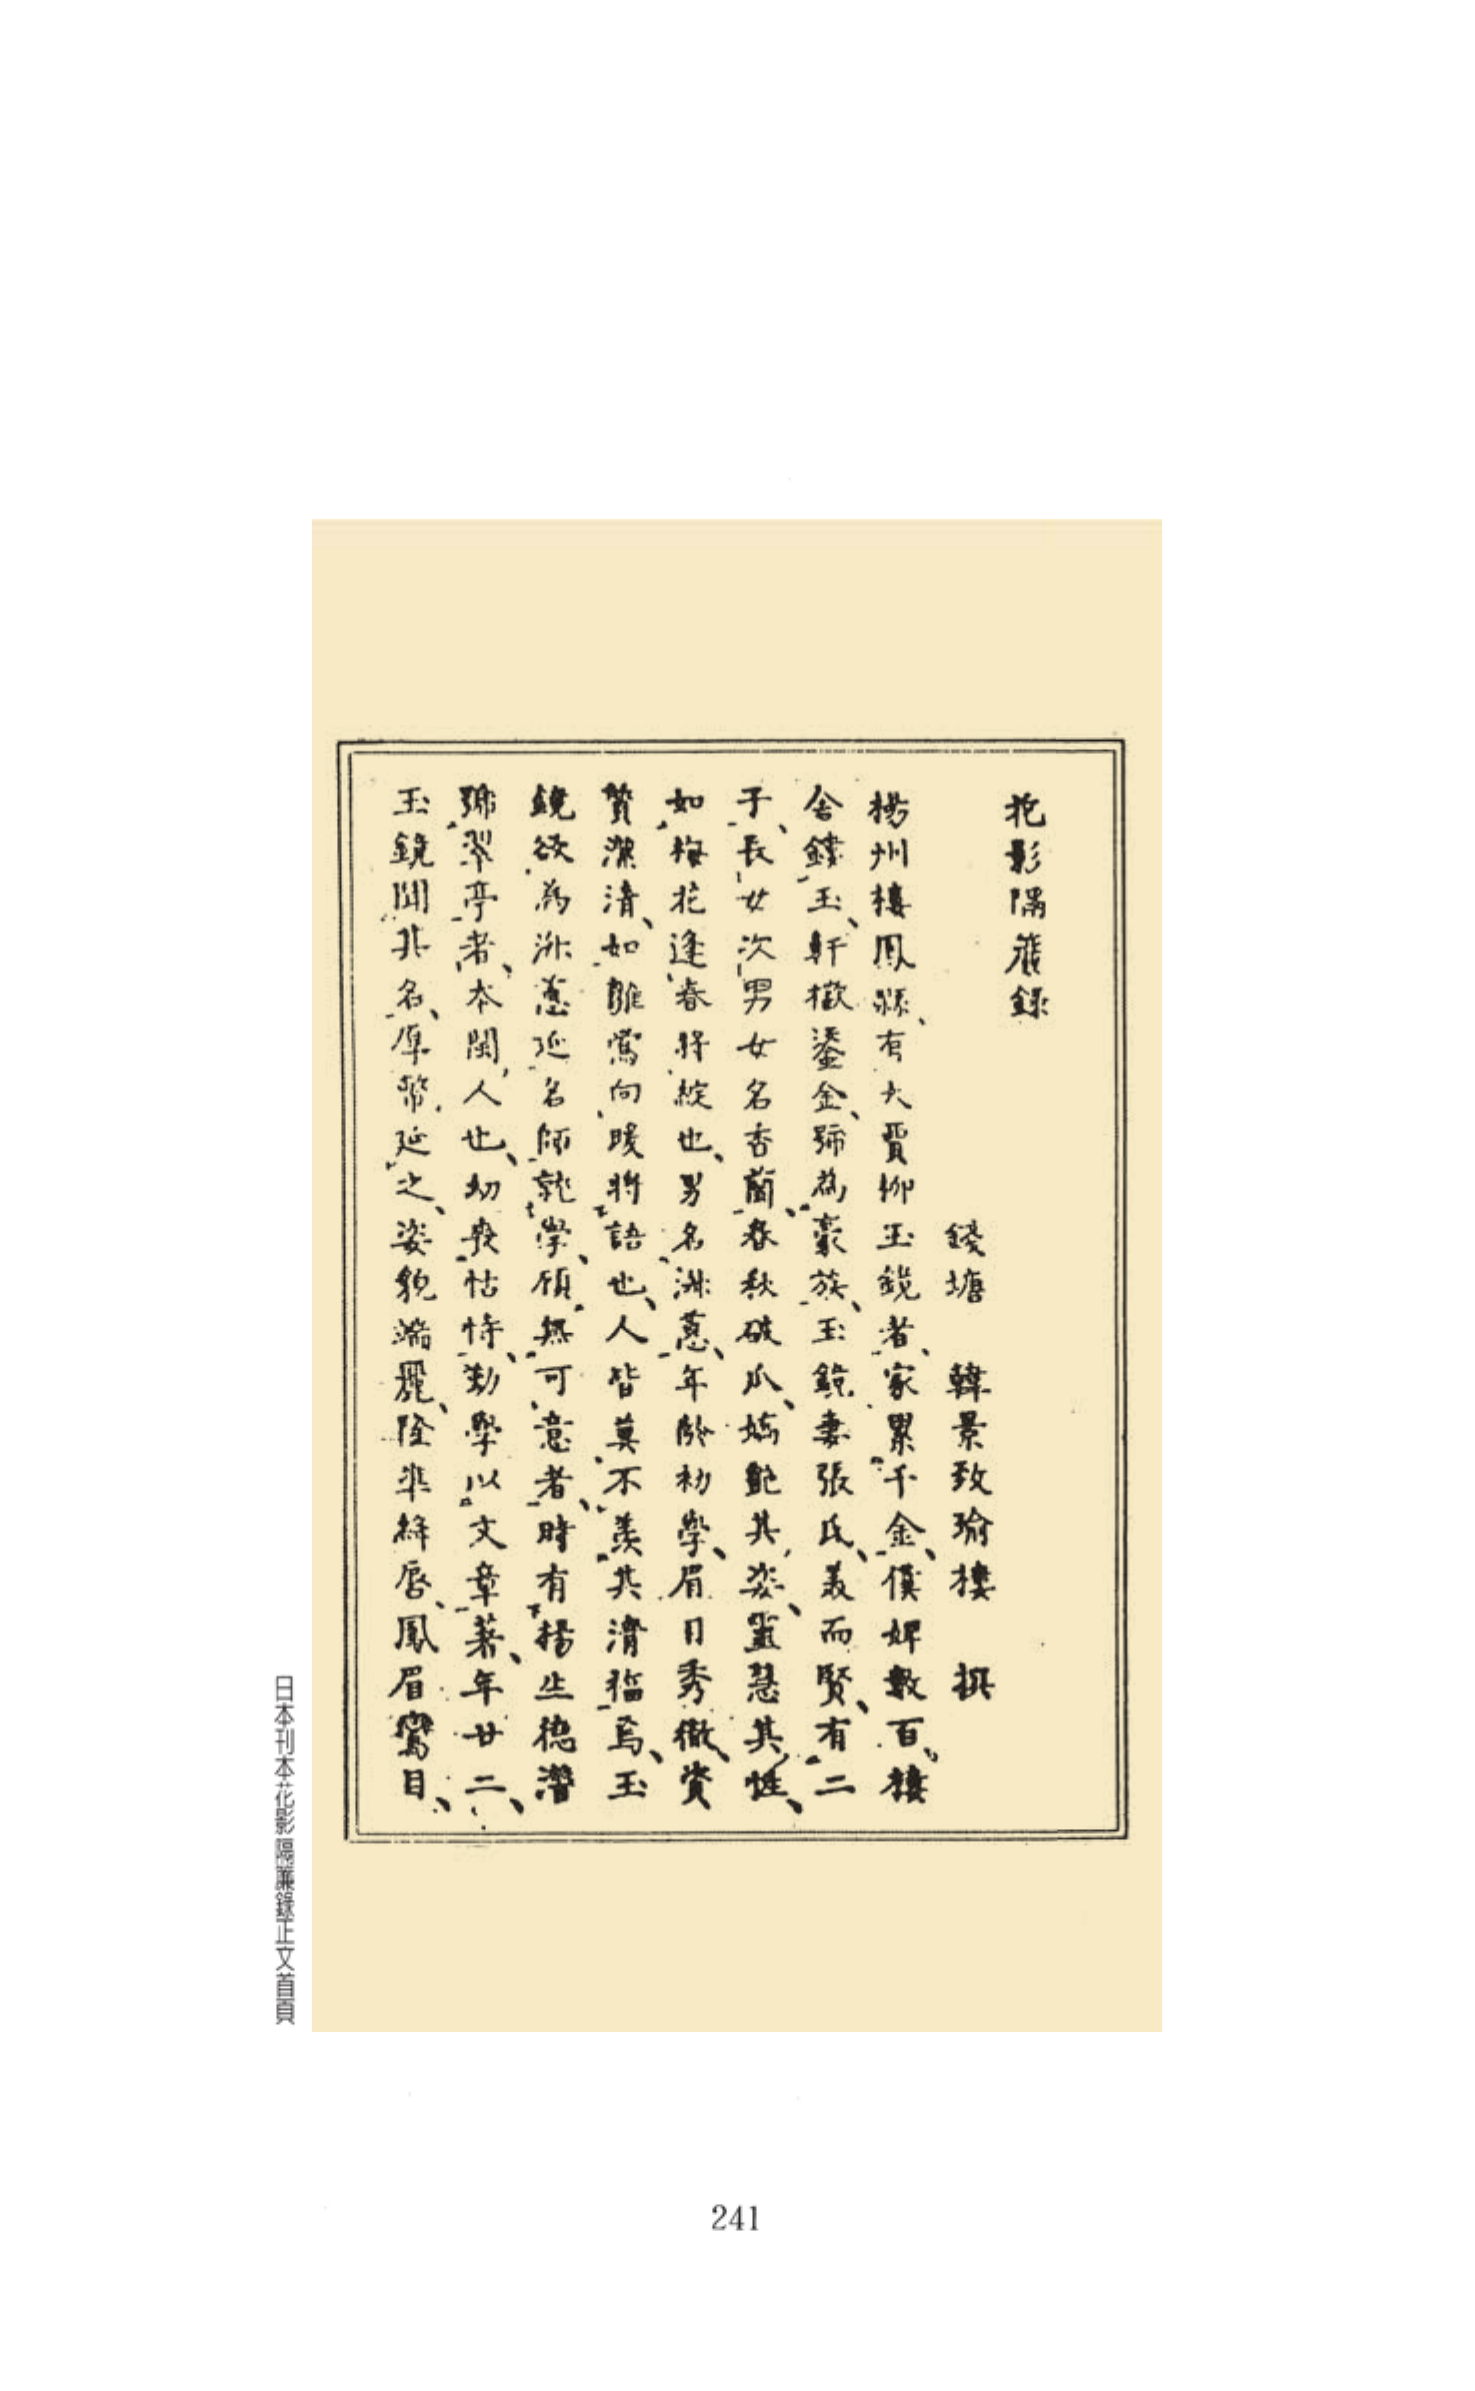 花影隔簾錄
錢塘 韓景致瑜樓 撰
楊州樓鳳縣、有大賈柳玉鏡者、家累千金、僕婢數百、樓
舍鏤玉、軒檻鎏金、號為豪族、玉鏡妻張氏、美而賢、有二
子、長女次男女名杏蘭、春秋破瓜、嬌艷其姿、靈慧其性、
如梅花逢春將綻也、男名淑蕙、年齡初學、眉目秀徹、資
質潔清、如雛鶯向暖將語也、人皆莫不羨其濟福焉、玉
鏡欲為淑蕙延名師就學、頎無可意者、時有楊生德潛
號翠亭者、本閩人也、幼喪怙恃、勤學以文章著、年廿二、
玉鏡聞其名、厚幣延之、姿貌端麗、隆準絳唇、鳳眉鸞目、
日本刊本花影隔簾錄正文首頁
241